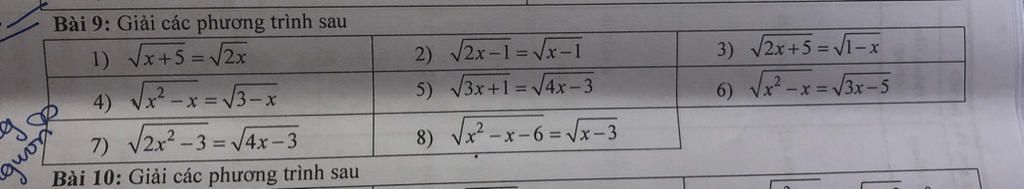 Bài 9: Giải các phương trình sau
1) √(x+5) = √(2x) 2) √(2x−1) = √(x−1) 3) √(2x+5) = √(1−x)
4) √(x²−x) = √(3−x) 5) √(3x+1) = √(4x−3) 6) √(x²−x) = √(3x−5)
7) √(2x²−3) = √(4x−3) 8) √(x²−x−6) = √(x−3)
Bài 10: Giải các phương trình sau